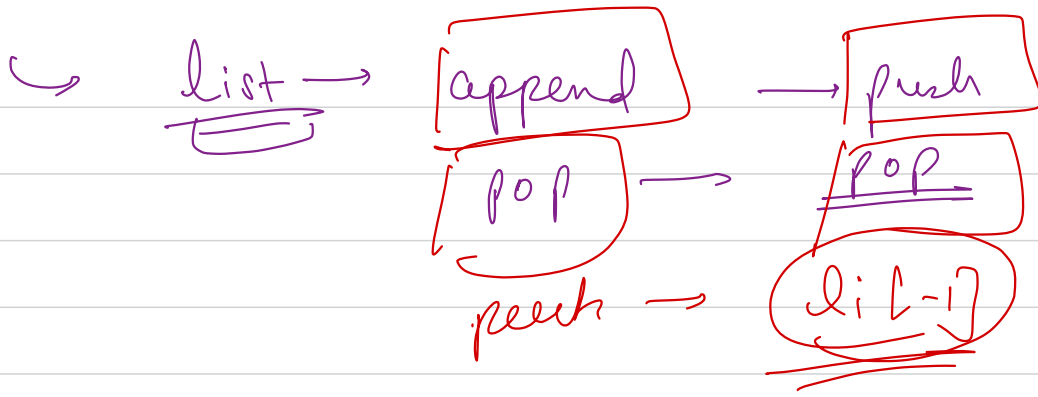 list → append → push
pop → pop
peek → li[-1]